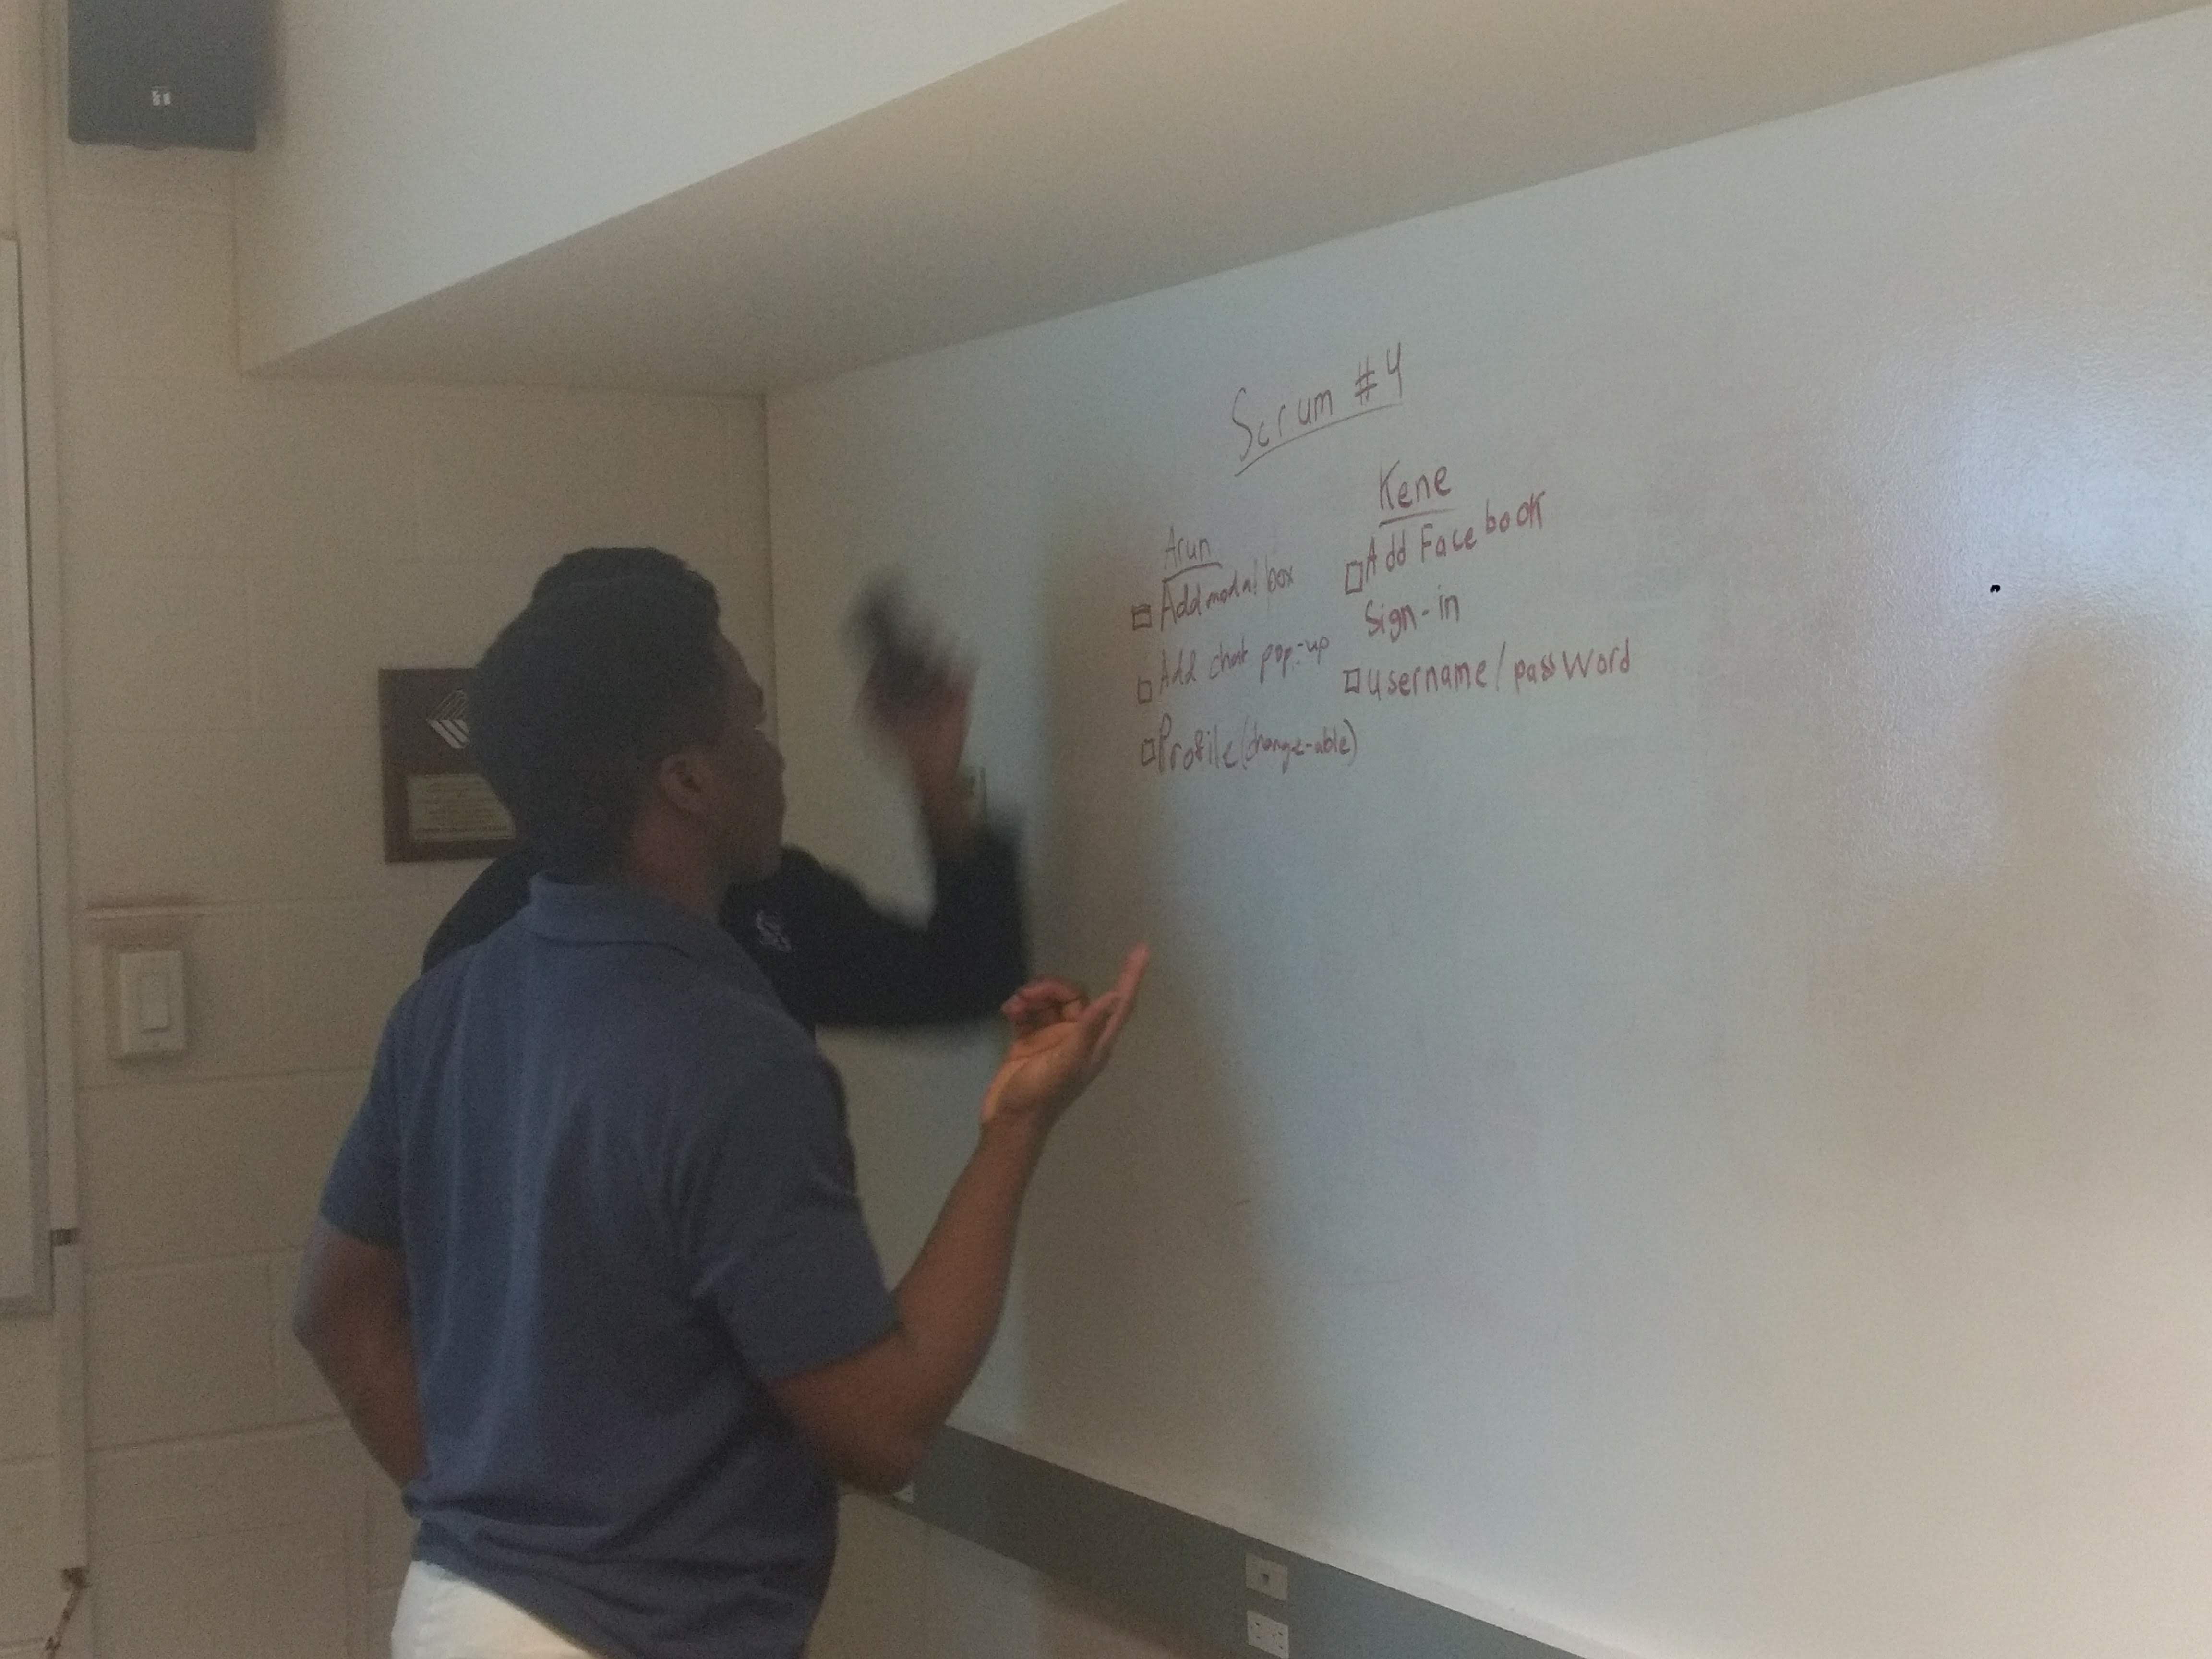 Scrum #4
Arun
Add modal box
Add chat pop-up
Profile (change-able)
Kene
Add Facebook
Sign-in
username/password